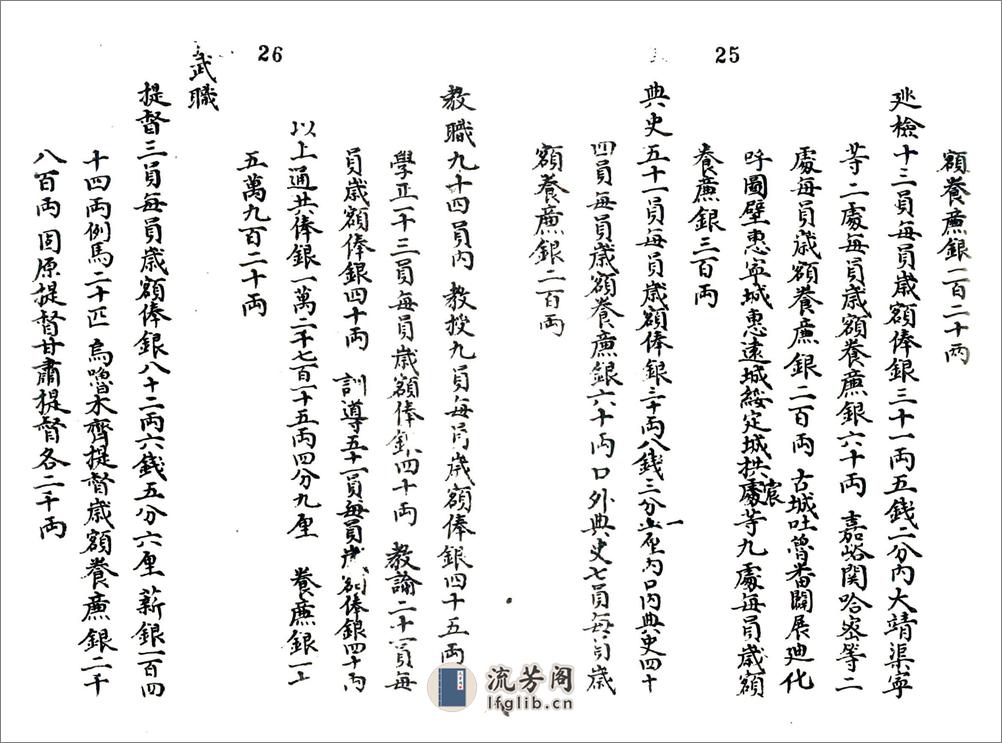 25
額養廉銀一百二十兩
巡檢十三員每員歲額俸銀三十一兩五錢二分內大靖渠寧
等二處每員歲額養廉銀六十兩 嘉峪関哈密等二
處每員歲額養廉銀二百兩 古城吐魯番闢展廸化
呼圖壁惠寧城惠遠城綏定城拱宸處等九處每員歲額
養廉銀三百兩
典史五十一員每員歲額俸銀三十兩八錢三分一厘內口內典史四十
四員每員歲額養廉銀六十兩口外典史七員每員歲
額養廉銀二百兩
26
教職九十四員內 教授九員每員歲額俸銀四十五兩
學正十三員每員歲額俸銀四十兩 教諭二十一員每
員歲額俸銀四十兩 訓導五十一員每員歲額俸銀四十兩
以上通共俸銀一萬二千七百一十五兩四分九厘 養廉銀一十
五萬九百二十兩
武職
提督三員每員歲額俸銀八十二兩六錢五分六厘 薪銀一百四
十四兩例馬二十匹 烏嚕木齊提督歲額養廉銀二千
八百兩固原提督甘肅提督各二千兩
流芳阁
lfglib.cn